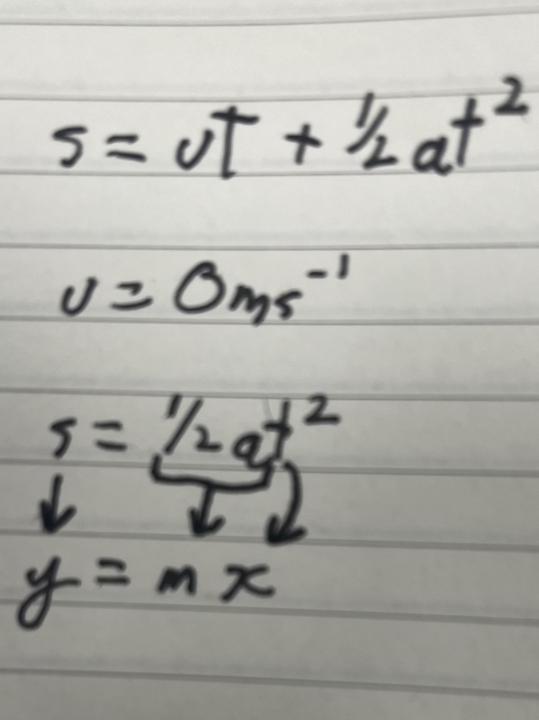 s = ut + ½ at²
u = 0ms⁻¹
s = ½ at²
↓ ↓ ↓
y = m x